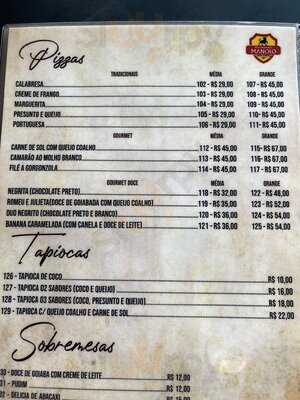 Pizzas
MANOLO
TRADICIONAIS MÉDIA GRANDE
CALABRESA 102 - R$ 29,00 107 - R$ 45,00
CREME DE FRANGO 103 - R$ 29,00 108 - R$ 45,00
MARGUERITA 104 - R$ 29,00 109 - R$ 45,00
PRESUNTO E QUEIJO 105 - R$ 29,00 110 - R$ 45,00
PORTUGUESA 106 - R$ 29,00 111- R$ 45,00
GOURMET MÉDIA GRANDE
CARNE DE SOL COM QUEIJO COALHO 112 - R$ 45,00 115- R$ 67,00
CAMARÃO AO MOLHO BRANCO 113 - R$ 45,00 116 - R$ 67,00
FILÉ A GORGONZOLA 114 - R$ 45,00 117 - R$ 67,00
GOURMET DOCE MÉDIA GRANDE
NEGRITA (CHOCOLATE PRETO) 118 - R$ 32,00 122 - R$ 48,00
ROMEU E JULIETA(DOCE DE GOIABADA COM QUEIJO COALHO) 119 - R$ 35,00 123- R$ 52,00
DUO NEGRITO (CHOCOLATE PRETO E BRANCO) 120- R$ 36,00 124- R$ 54,00
BANANA CARAMELADA (COM CANELA E DOCE DE LEITE) 121 - R$ 36,00 125- R$ 54,00
Tapiocas
126 - TAPIOCA DE COCO R$ 10,00
127 - TAPIOCA 02 SABORES (COCO E QUEIJO) R$ 16,00
128 - TAPIOCA 03 SABORES (COCO, PRESUNTO E QUEIJO) R$ 18,00
129 - TAPIOCA C/ QUEIJO COALHO E CARNE DE SOL R$ 22,00
Sobremesas
30 - DOCE DE GOIABA COM CREME DE LEITE R$ 12,00
31 - PUDIM R$ 12,00
32 - DELICIA DE ABACAXI R$